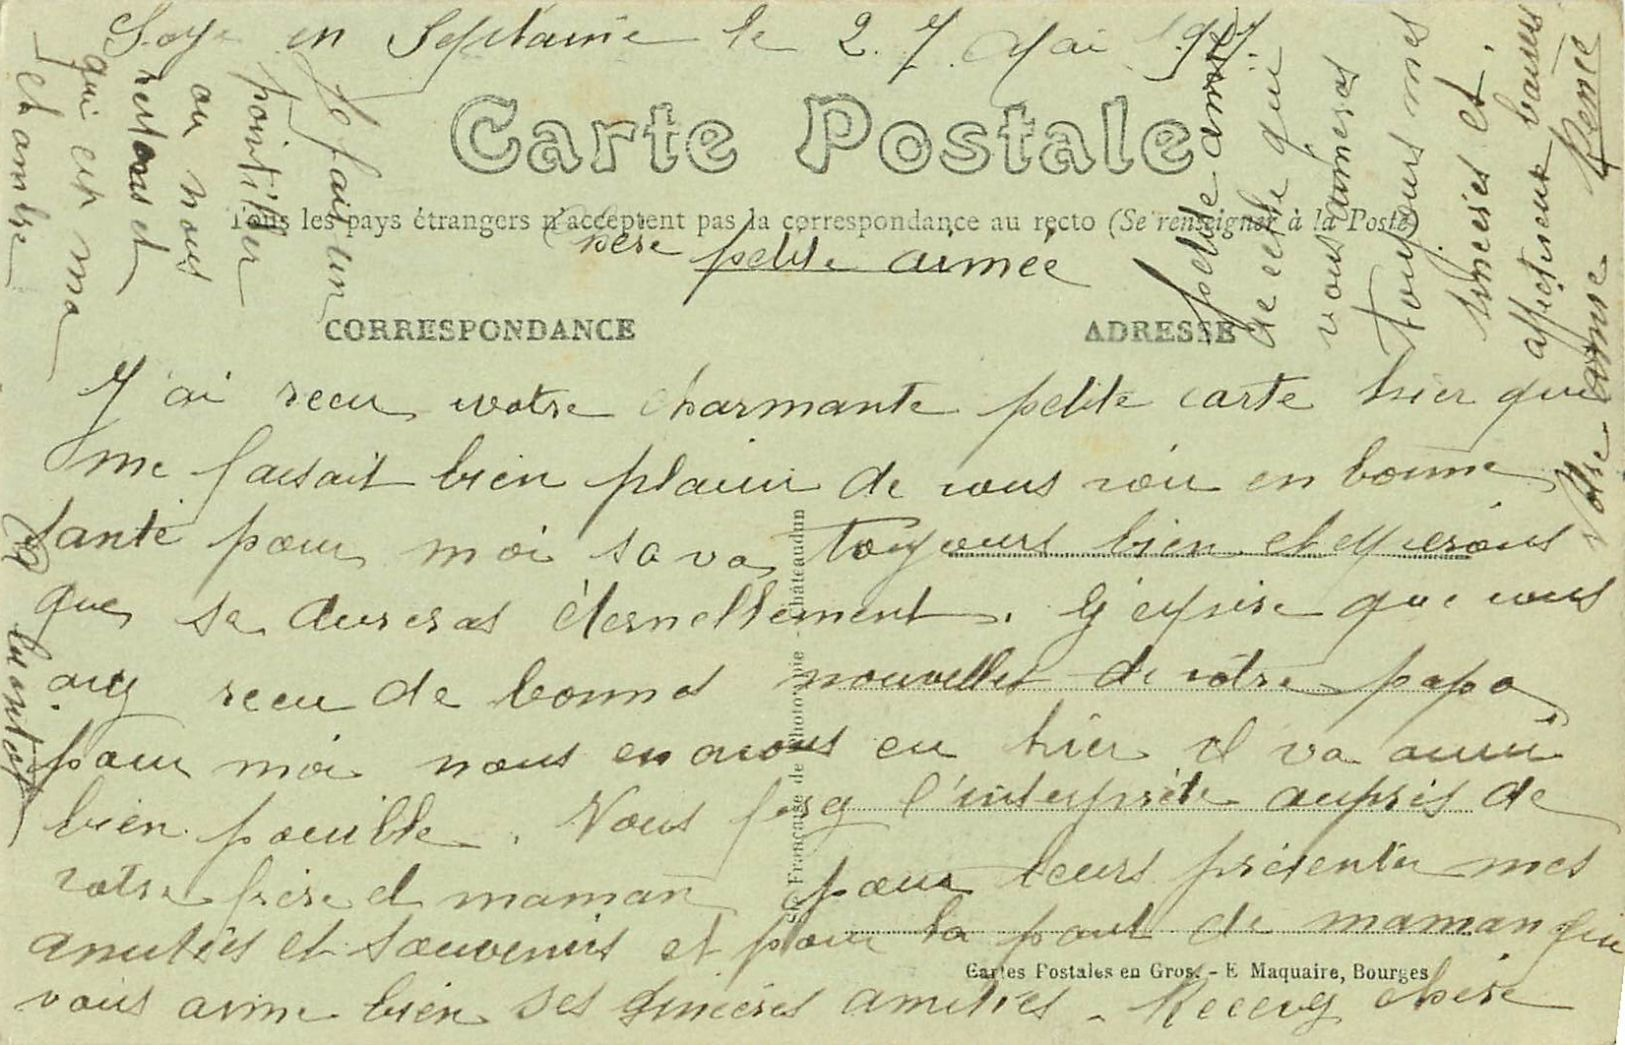 Soye en Septaine le 27 Mai 1917.
Carte Postale
Tous les pays étrangers n'acceptent pas la correspondance au recto (Se renseigner à la Poste)
Chère petite aimée
CORRESPONDANCE
ADRESSE
J'ai recu votre charmante petite carte hier qui
me faisait bien plaisir de vous voir en bonne
santé pour moi sa va toujours bien et espérons
que se dureras éternellement. J'espère que vous
avez recu de bonnes nouvelles de votre papa
pour moi nous en avons eu hier il va aussi
bien possible. Vous ferez l'interprète auprès de
votre frère et maman pour leurs présenter mes
amitiés et souvenirs et pour la part de maman qui
vous aime bien ses sincères amitiés. Recevez chère
petite amie
de celle qui
vous aimeras
toujours mes
sincères et
affectueux baisers
Votre amie Renée
Je fais un
pointiller
ou nous
restons et
qui est ma
chambre
A bientôt
Cie Française de Photographie - Châteaudun
Cartes Postales en Gros. - E Maquaire, Bourges